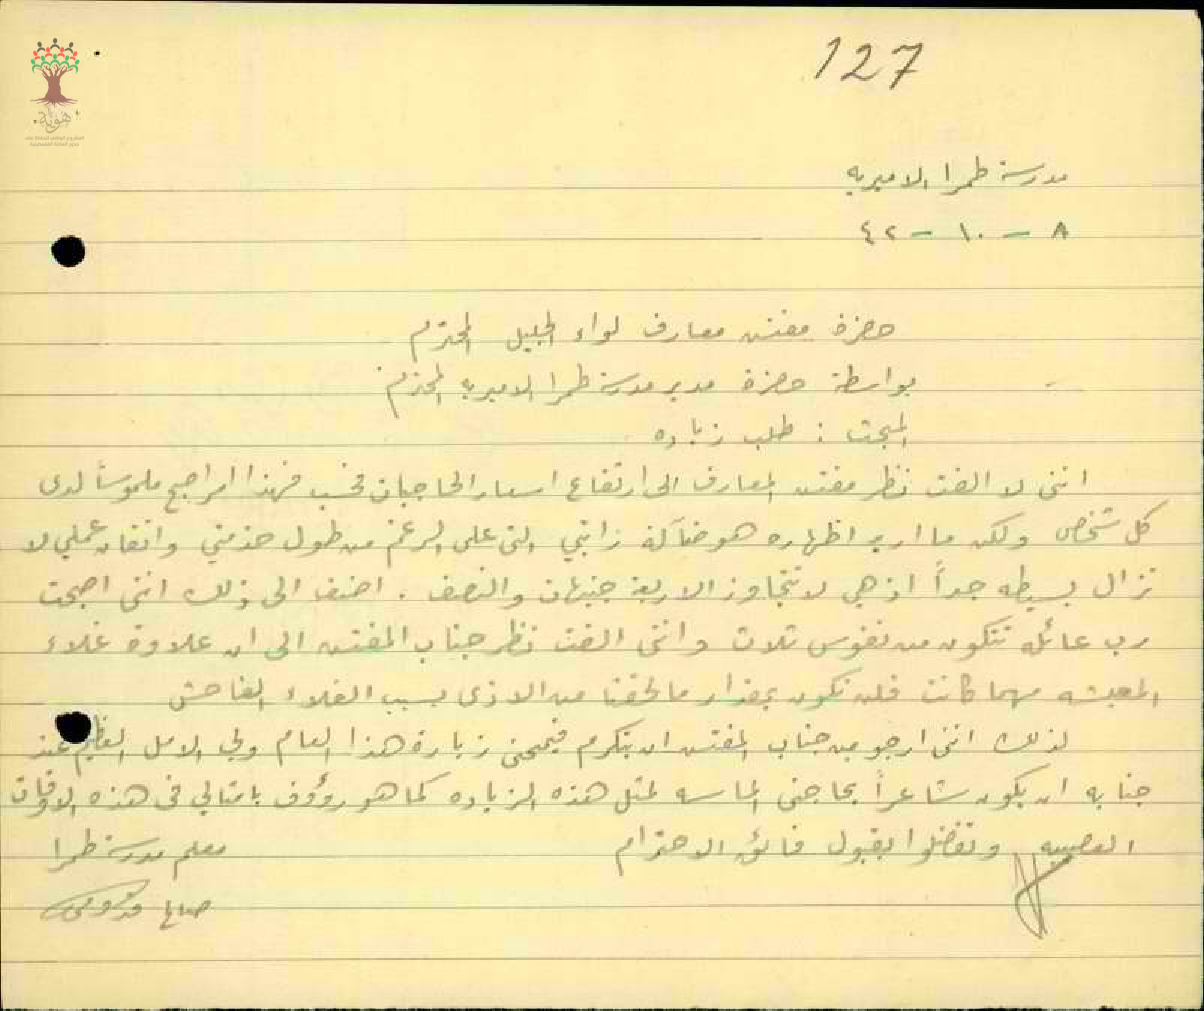 127
هوية
مدرسة طمرا الاميريه
٨ - ١٠ - ٤٢
حضرة مفتش معارف لواء الجليل المحترم
بواسطة حضرة مدير مدرسة طمرا الاميريه المحترم
المبحث : طلب زياده
انني لا الفت نظر مفتش المعارف الى ارتفاع اسعار الحاجيات فحسب فهذا امر اصبح ملموساً لدى
كل شخص ولكن ما اريد اظهاره هو ضآلة راتبي التي على الرغم من طول خدمتي واتقان عملي لا
تزال بسيطه جداً اذ هي لا تتجاوز الاربعة جنيهات والنصف . اضف الى ذلك انني اصبحت
رب عائلة تتكون من نفوس ثلاث وانني الفت نظر جناب المفتش الى ان علاوة غلاء
المعيشه مهما كانت فلن تكون بمقدار ما لحقنا من الاذى بسبب الغلاء الفاحش
لذلك انني ارجو من جناب المفتش ان يتكرم فيمنحني زيارة هذا العام ولي الامل العظيم عند
جنابه ان يكون شاعراً بحاجتي الماسه لمثل هذه الزياده كما هو رؤوف بامثالي في هذه الاوقات
العصيبه وتفضلوا بقبول فائق الاحترام
معلم مدرسة طمرا
صالح